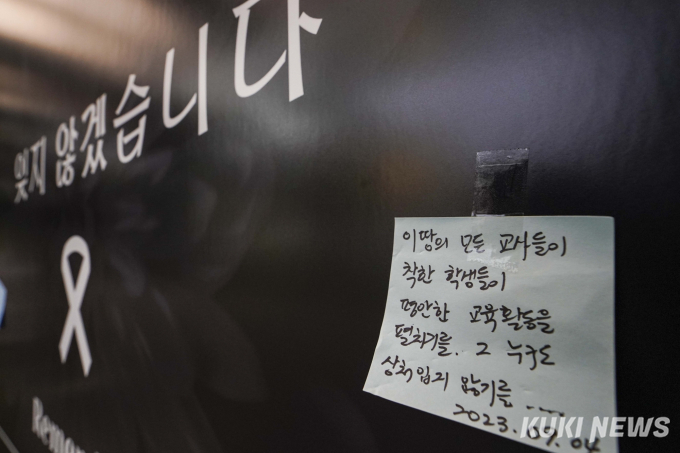 잊지 않겠습니다
이 땅의 모든 교사들이
착한 학생들이
평안한 교육활동을
펼치기를. 그 누구도
상처입지 않기를 ....
2023. 09. 04
KUKI NEWS